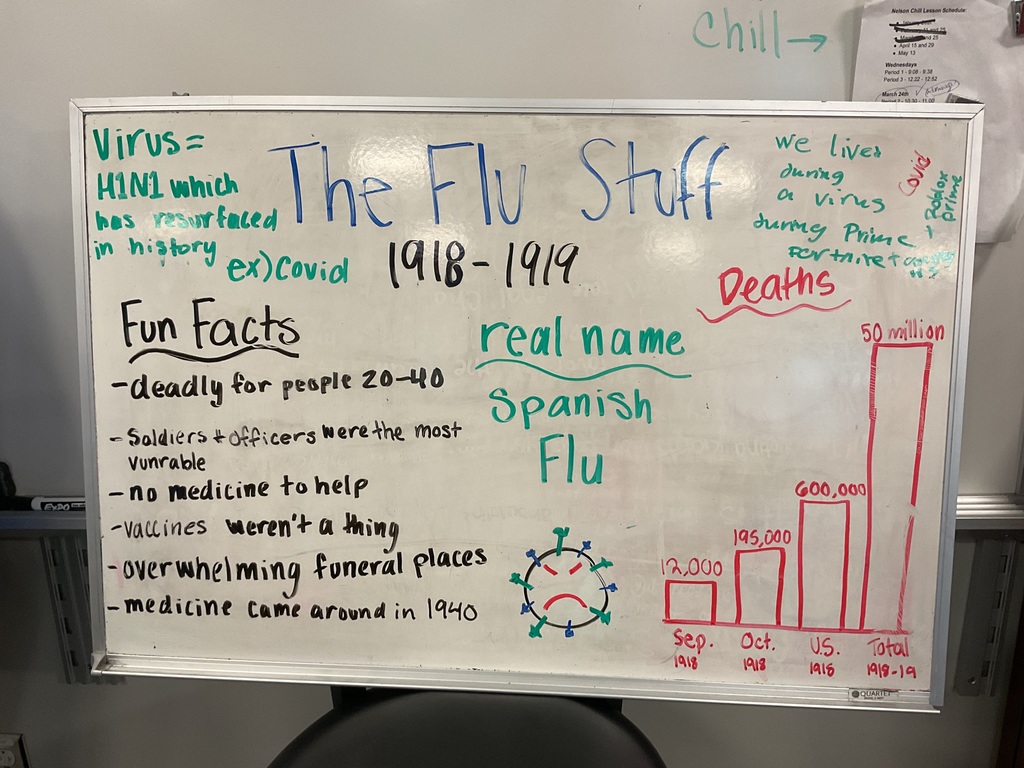 Chill →
Nelson Chill Lesson Schedule:
and 25
• April 15 and 29
• May 13
Wednesdays
Period 1 - 9:08 - 9:38
Period 3 - 12:22 - 12:52
March 24th
Virus=
H1N1 which
has resurfaced
in history
ex) Covid
The Flu Stuff
1918-1919
we lived
during
a virus
during Prime
Fortnite +
Covid
+ Roblox
prime
Fun Facts
-deadly for people 20-40
-Soldiers + officers were the most
vunrable
-no medicine to help
-vaccines weren't a thing
-overwhelming funeral places
-medicine came around in 1940
real name
Spanish
Flu
Deaths
12,000
195,000
600,000
50 million
Sep.
1918
Oct.
1918
U.S.
1918
Total
1918-19
QUARTET
EXPO